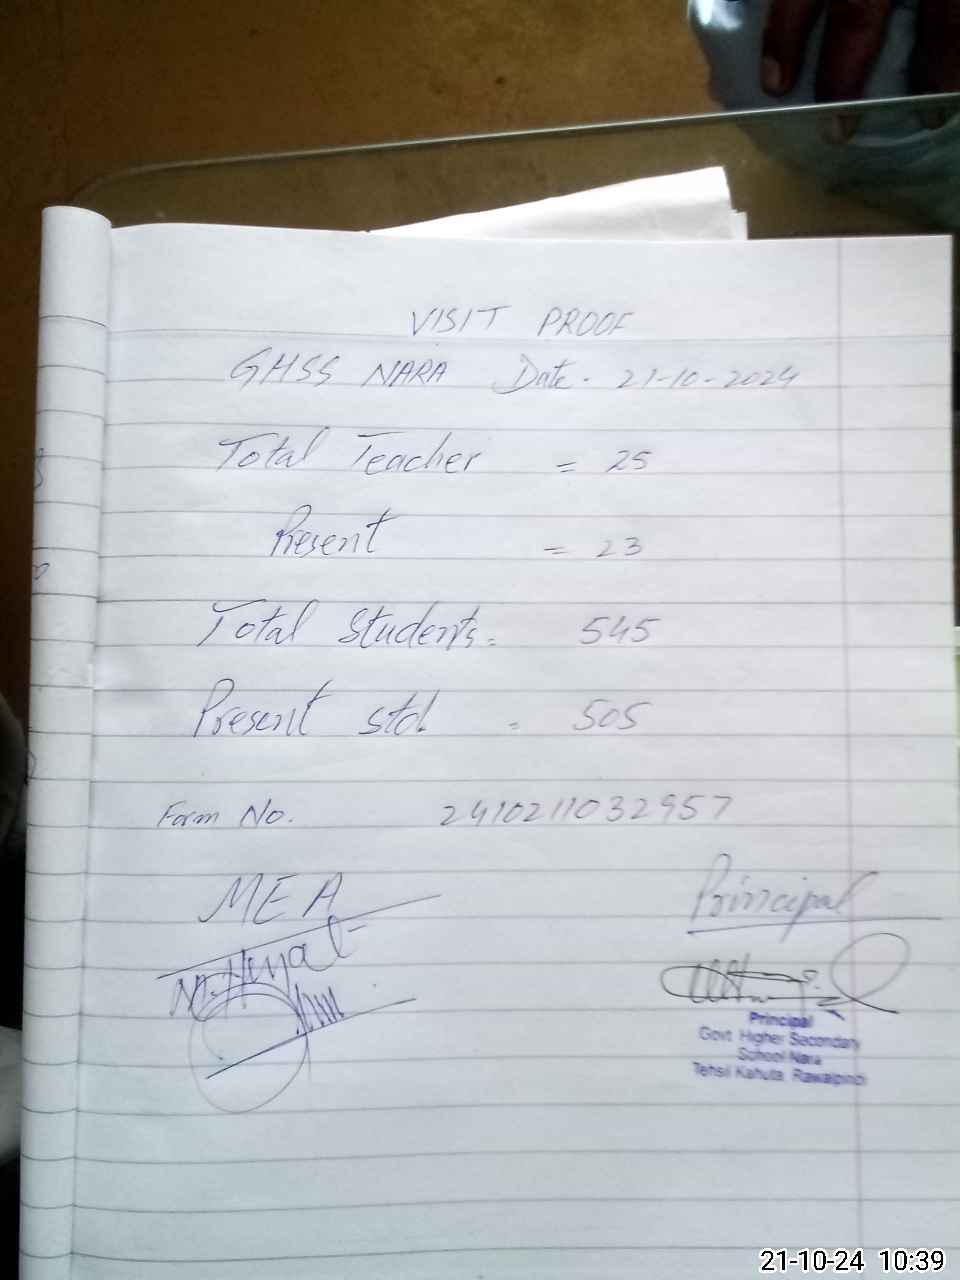 VISIT PROOF
GHSS NARA Date - 21-10-2024
Total Teacher = 25
Present = 23
Total Students = 545
Present std. = 505
Form No. 2410211032957
MEA
Principal
Principal
Govt Higher Secondary
School Nara
Tehsil Kahuta Rawalpindi
21-10-24 10:39